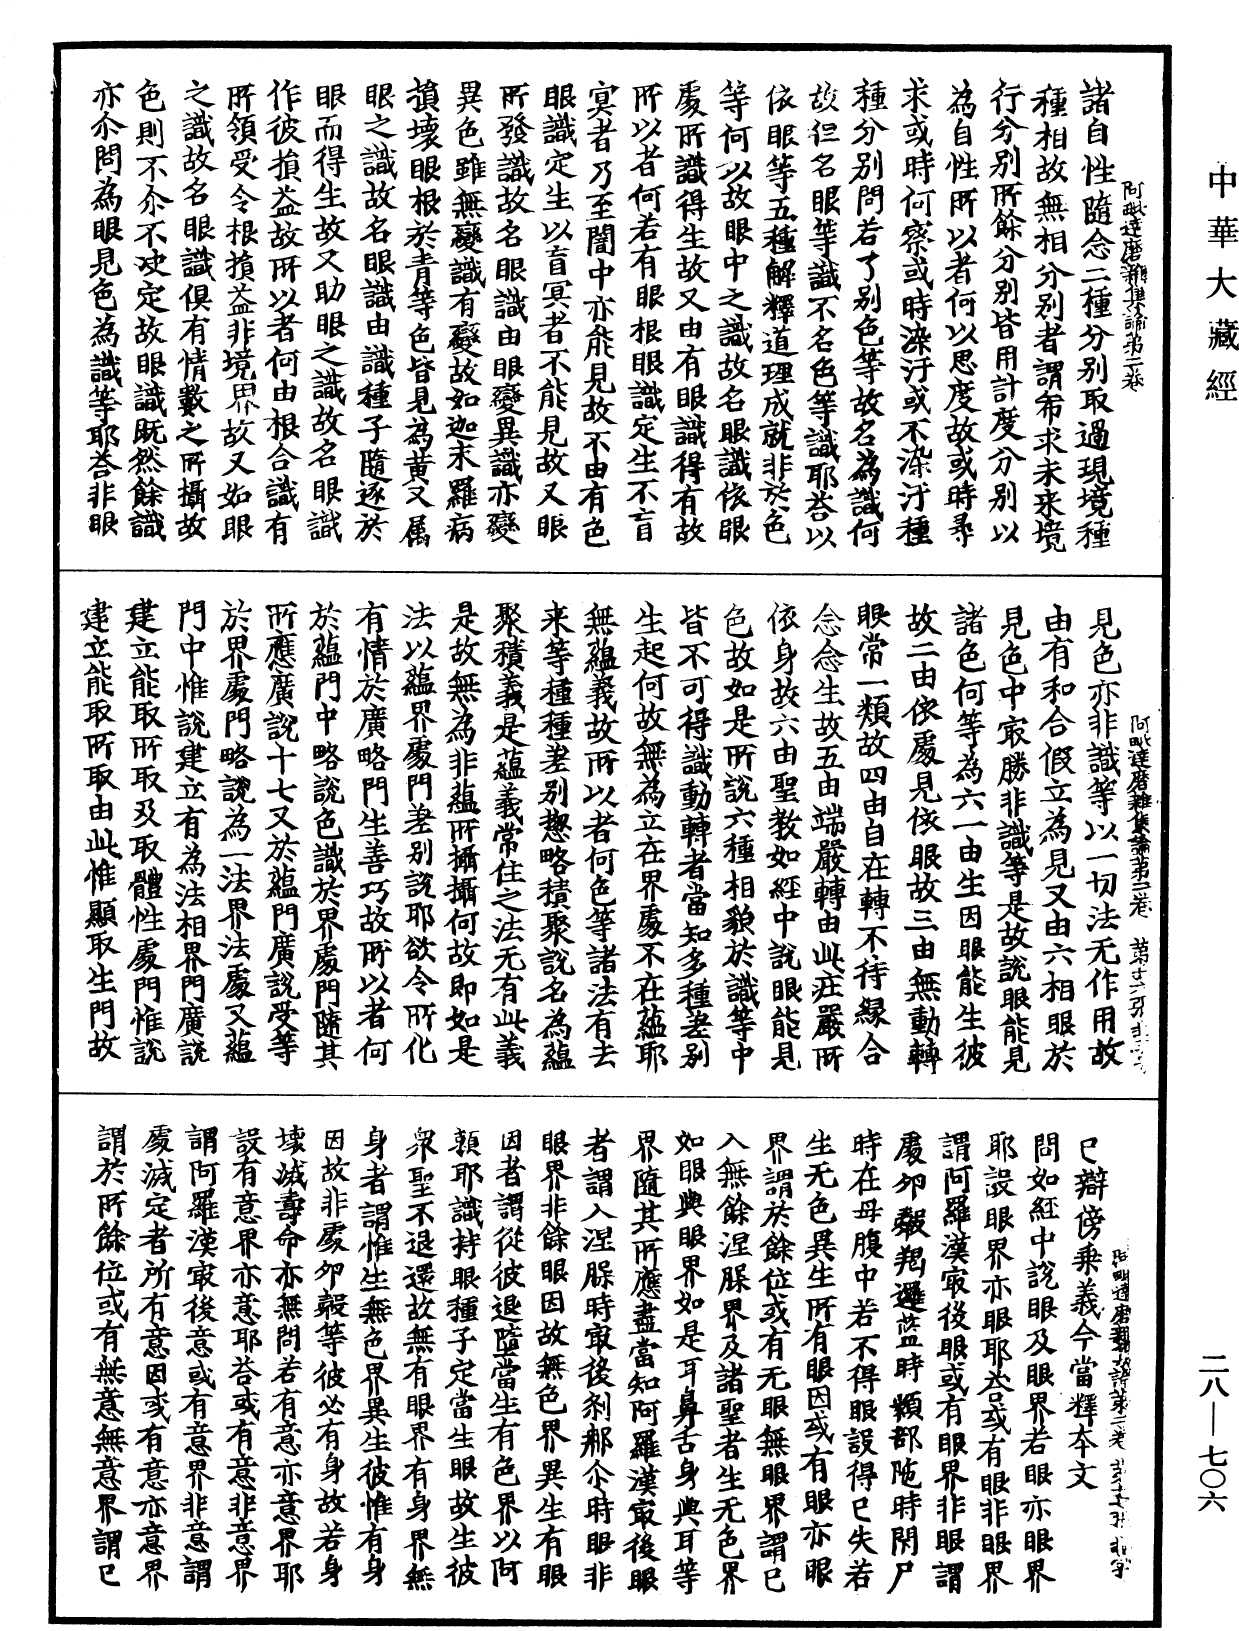 中華大藏經
諸自性隨念二種分別取過現境種
種相故無相分別者謂希求未来境
行分別所餘分別皆用計度分別以
為自性所以者何以思度故或時尋
求或時伺察或時染汙或不染汙種
種分別問若了別色等故名為識何
故但名眼等識不名色等識耶荅以
依眼等五種解釋道理成就非於色
等何以故眼中之識故名眼識依眼
處所識得生故又由有眼識得有故
所以者何若有眼根眼識定生不盲
冥者乃至闇中亦能見故不由有色
眼識定生以盲冥者不能見故又眼
所發識故名眼識由眼變異識亦變
異色雖無變識有變故如迦末羅病
損壞眼根於青等色皆見為黃又属
眼之識故名眼識由識種子隨逐於
眼而得生故又助眼之識故名眼識
作彼損益故所以者何由根合識有
所領受令根損益非境界故又如眼
之識故名眼識俱有情數之所攝故
色則不尒不决定故眼識旣然餘識
亦尒問為眼見色為識等耶荅非眼
見色亦非識等以一切法无作用故
由有和合假立為見又由六相眼於
見色中㝡勝非識等是故說眼能見
諸色何等為六一由生因眼能生彼
故二由依處見依眼故三由無動轉
眼常一類故四由自在轉不待緣合
念念生故五由端嚴轉由此莊嚴所
依身故六由聖教如經中說眼能見
色故如是所說六種相貌於識等中
皆不可得識動轉者當知多種差別
生起何故無為立在界處不在蘊耶
無蘊義故所以者何色等諸法有去
来等種種差別揔略積聚說名為蘊
聚積義是蘊義常住之法无有此義
是故無為非蘊所攝攝何故即如是
法以蘊界處門差別說耶欲令所化
有情於廣略門生善巧故所以者何
於蘊門中略說色識於界處門隨其
所應廣說十七又於蘊門廣說受等
於界處門略說為一法界法處又蘊
門中惟說建立有為法相界門廣說
建立能取所取及取體性處門惟說
建立能取所取由此惟顯取生門故
已辯傍乗義今當釋本文
問如經中說眼及眼界若眼亦眼界
耶設眼界亦眼耶荅或有眼非眼界
謂阿羅漢㝡後眼或有眼界非眼謂
處卵㲉羯邏藍時頞部陁時閇尸
時在母腹中若不得眼設得已失若
生无色異生所有眼因或有眼亦眼
界謂於餘位或有无眼無眼界謂已
入無餘涅槃界及諸聖者生无色界
如眼與眼界如是耳鼻舌身與耳等
界隨其所應盡當知阿羅漢㝡後眼
者謂入涅槃時㝡後刹那尒時眼非
眼界非餘眼因故無色界異生有眼
因者謂從彼退墮當生有色界以阿
頼耶識持眼種子定當生眼故生彼
衆聖不退還故無有眼界有身界無
身者謂惟生無色界異生彼惟有身
因故非處卵㲉等彼必有身故若身
壞滅壽命亦無問若有意亦意界耶
設有意界亦意耶荅或有意非意界
謂阿羅漢㝡後意或有意界非意謂
處滅定者所有意因或有意亦意界
謂於所餘位或有無意無意界謂已
二八—七〇六